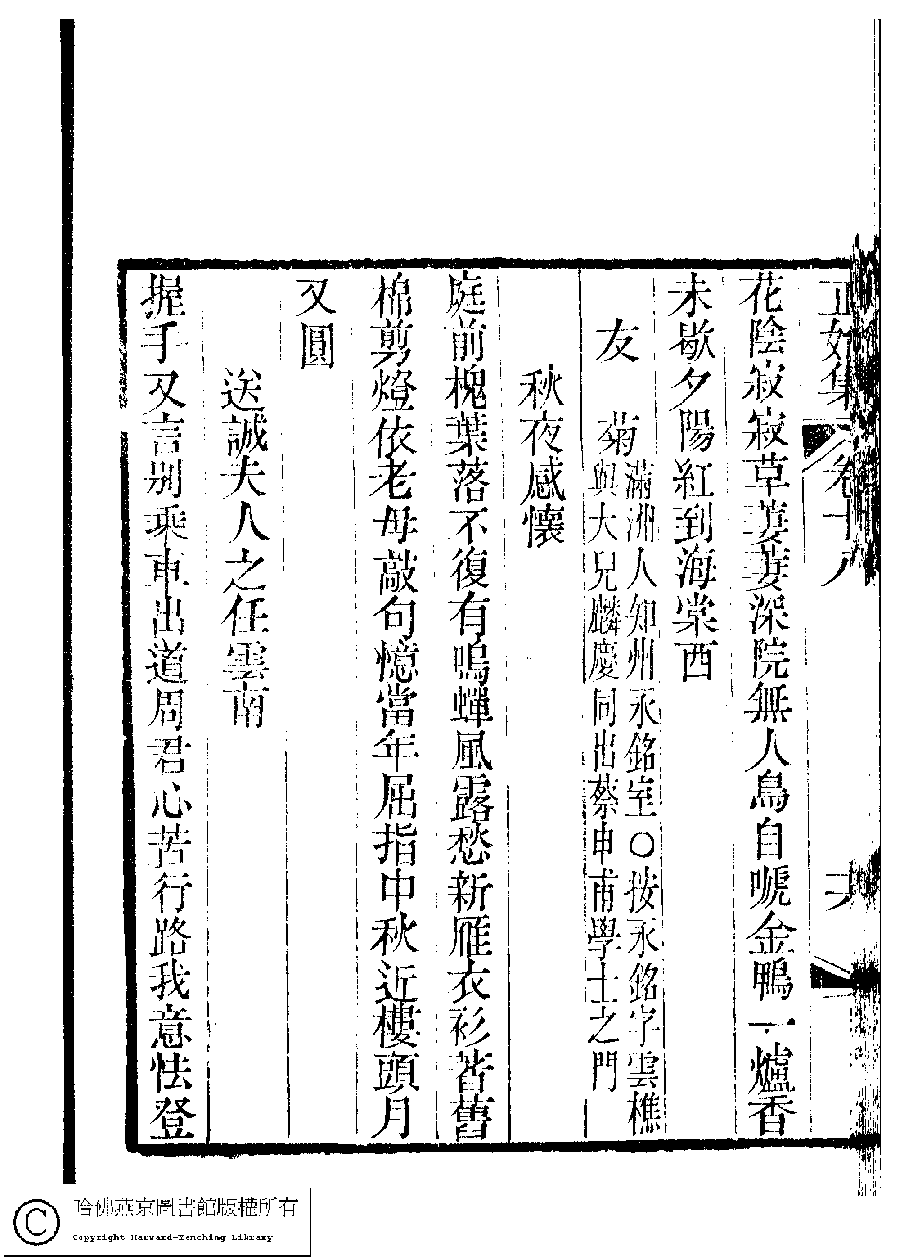 正始集 卷十八
花陰寂寂草萋萋深院無人鳥自嗁金鴨一爐香
未歇夕陽紅到海棠西
友菊
滿洲人知州永銘室○按永銘字雲樵
與大兒麟慶同出蔡申甫學士之門
秋夜感懷
庭前槐葉落不復有鳴蟬風露愁新雁衣衫著舊
棉剪燈依老母敲句憶當年屈指中秋近樓頭月
又圓
送誠夫人之任雲南
握手又言別乘車出道周君心苦行路我意怯登
哈佛燕京圖書館版權所有
Copyright Harvard-Yenching Library